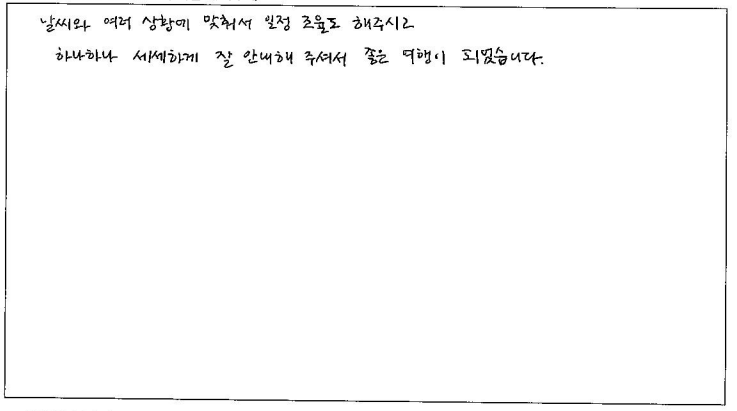 날씨와 여러 상황에 맞춰서 일정 조율도 해주시고
하나하나 세세하게 잘 안내해 주셔서 좋은 여행이 되었습니다.